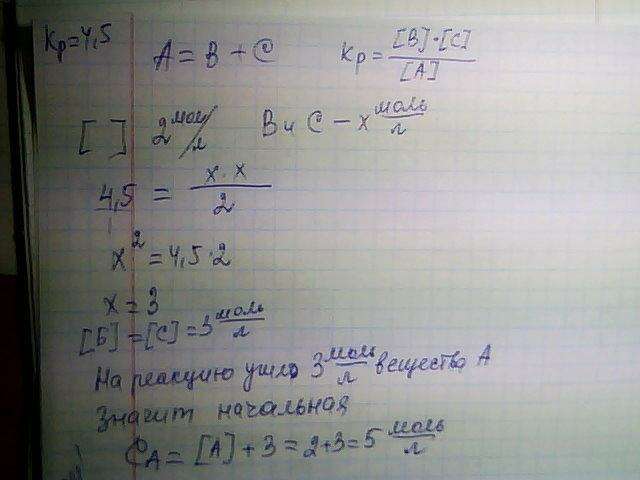 Kp=4,5
A = B + C    Kp = [B]·[C] / [A]
[ ]  2 моль/л    B и C – x моль/л
4,5 = x·x / 2
x² = 4,5·2
x = 3
[Б] = [C] = 3 моль/л
На реакцию ушло 3 моль/л вещества А
Значит начальная
C_A = [A] + 3 = 2+3 = 5 моль/л